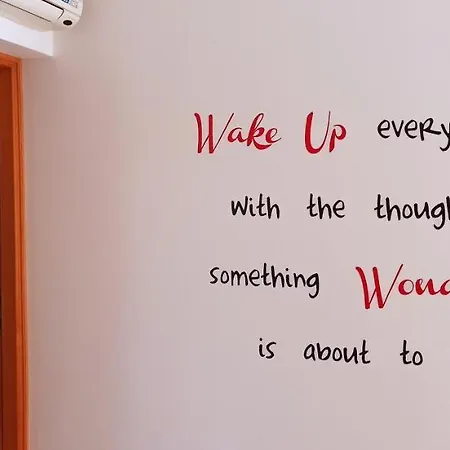 Wake Up every
with the though
something Wond
is about to